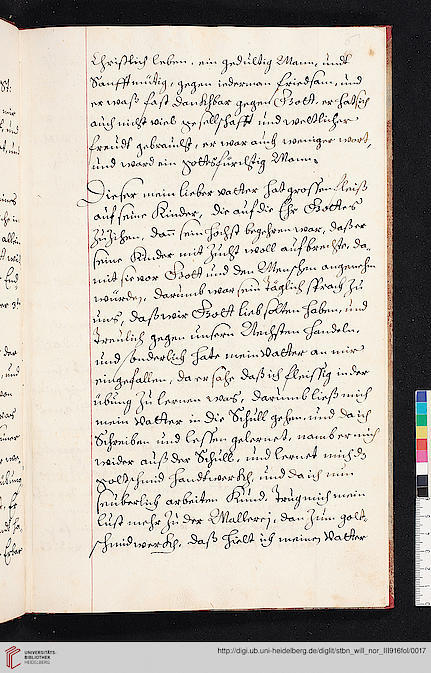 Christlich leben, ein gedultig Mann, und
Sanfftmütig, gegen iederman friedsam, und
er waß fast danckhbar gegen Gott, er hat sich
auch nicht viel gesellschafft und weltlicher
freudt gebraucht, er war auch weniger wort,
und ward ein gottsfürchtig Mann.
Dieser mein lieber vatter hat grossen fleiß
auf seine Kinder, die auf die Ehr Gottes
zu ziehen, dan sein höchst begehren war, daß er
seine Kinder mit zucht woll aufbrechte, da
mit sie vor Gott und den Menschen angenehm
würden, darumb war sein täglich sprach zu
uns, daß wir Gott lieb solten haben, und
treulich gegen unsern Nechsten handeln,
und sonderlich hate mein vatter an mir
ein gefallen, da er sahe daß ich fleissig in der
übung zu lernen was, darumb ließ mich
mein vatter in die Schull gehen, und da ich
Schreiben und lessen gelernet, nam er mich
wider auß der Schull, und lernet mich dz
goltschmid handtwerckh, und da ich nun
seuberlich arbeiten kund, trug mich mein
lust mehr zu der Mallerej, dan zum golt-
schmidwerckh, daß hielt ich meinen vatter
UNIVERSITÄTS-
BIBLIOTHEK
HEIDELBERG
http://digi.ub.uni-heidelberg.de/diglit/stbn_will_nor_III916fol/0017